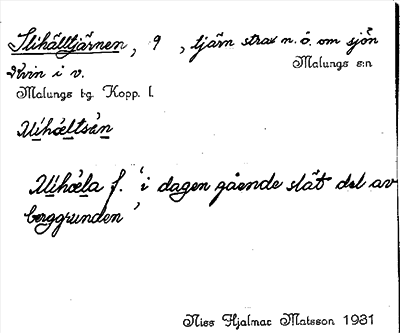 Slihälltjärnen, 9 , tjärn strax n.ö. om sjön
Malungs s:n
i v.
Malungs tg. Kopp. l.
f. 'i dagen gående slät del av
berggrunden'
Niss Hjalmar Matsson 1931